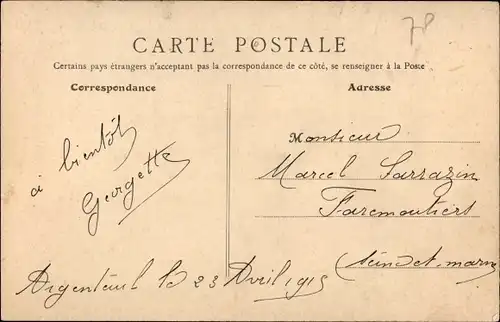 78
CARTE POSTALE
Certains pays étrangers n'acceptant pas la correspondance de ce côté, se renseigner à la Poste
Correspondance
Adresse
à bientôt
Georgette
Monsieur
Marcel Sarrazin
Faremoutiers
(Seine et marne
Argenteuil le 23 Avril 1915